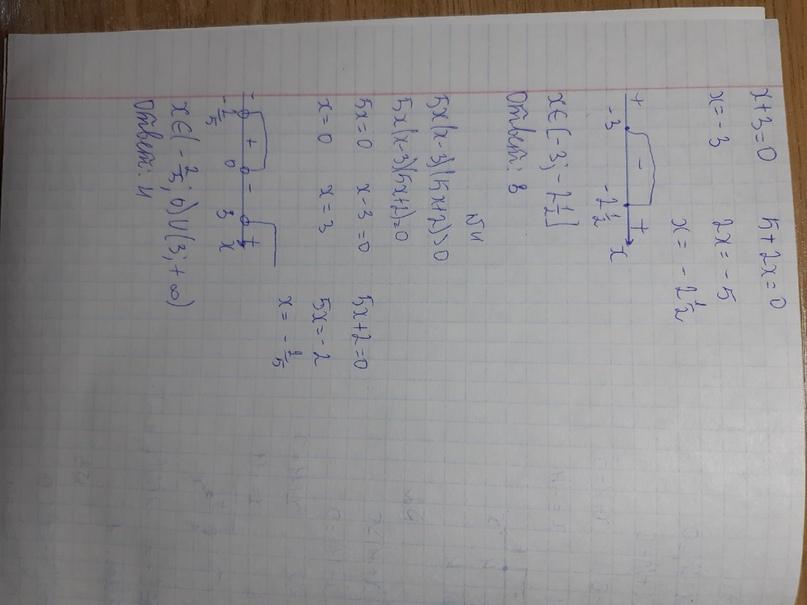 x+3=0 5+2x=0
x=-3 2x=-5
x = -2 1/2
+ - +
-3 -2 1/2 x
x∈[-3; -2 1/2]
Ответ: 8
№4
5x(x-3)(5x+2)>0
5x(x-3)(5x+2)=0
5x=0 x-3=0 5x+2=0
x=0 x=3 5x=-2
x = -2/5
- + - +
-2/5 0 3 x
x∈(-2/5; 0)∪(3; +∞)
Ответ: 4